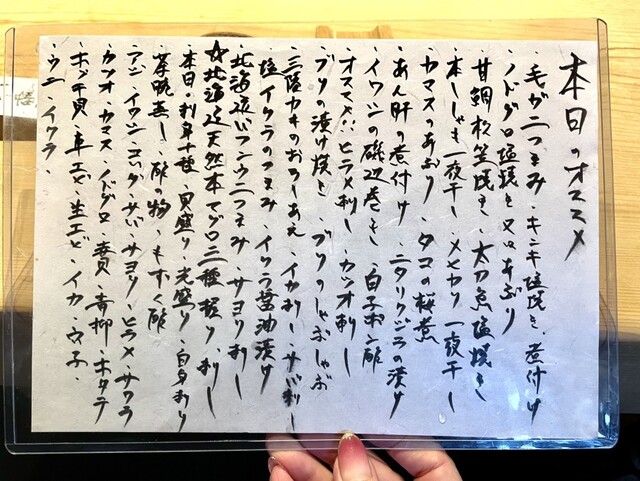 本日のオススメ
・毛ガニつまみ・キンキ塩焼き、煮付け
・ノドグロ塩焼き又はあぶり
・甘鯛松笠焼き・太刀魚塩焼き
・本ししゃも一夜干し・メヒカリ一夜干し
・カマスのあぶり・タコの桜煮
・あん肝の煮付け・ニタリクジラの漬け
・イワシの磯辺巻き・白子ポン酢
・オススメ!!ヒラメ刺し・カツオ刺し
・ブリの漬け焼き・ブリのしゃぶしゃぶ
・三陸カキのおろしあえ・イカ刺し・サバ刺し
・塩イクラのつまみ・イクラ醤油漬け
・北海道バフンウニつまみ・サヨリ刺し
☆北海道天然本マグロ二種握り、刺し
・本日の刺身十種・貝盛り・光盛り・白身盛り
・茶碗蒸し・酢の物・もずく酢
・アジ・イワシ・コハダ・サバ・サヨリ・ヒラメ・サワラ
・カツオ・カマス・ノドグロ・赤貝・青柳・ホタテ
・ホッキ貝・車エビ・生エビ・イカ・穴子・
・ウニ・イクラ・